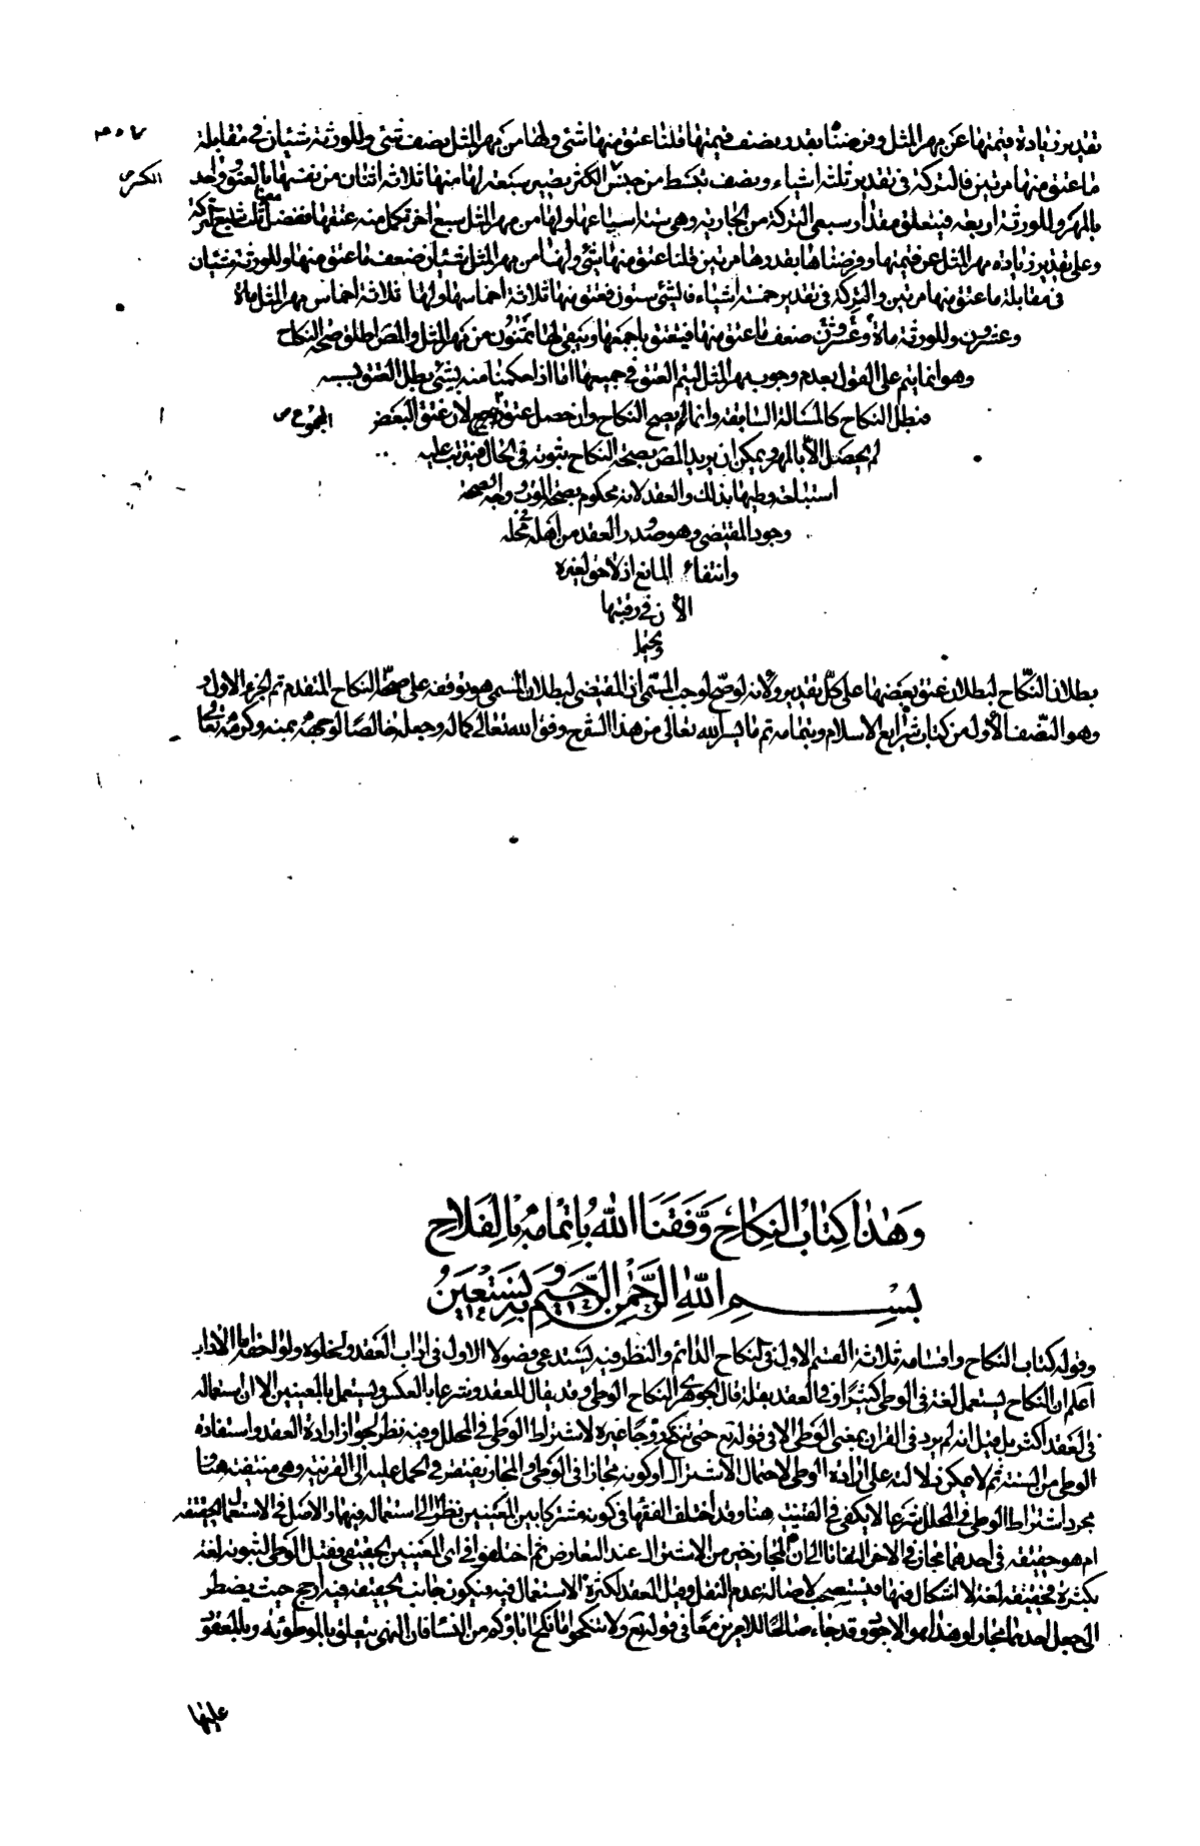 بتقدير زيادة قيمتها عن مهر المثل وفرضنا بقدر نصف قيمتها قلنا عتق منها شئ ولها من مهر المثل نصف شئ وللورثة شيئان في مقابلة
ما عتق منها مرتين فالتركة في تقدير ثلثة اشياء ونصف تبسط من جنس الكسر يصير سبعة لها منها ثلاثة اثنان من نفسها بالعتق وواحد
الكسر ص
بالمهر وللورثة اربعة فينعتق مقدار سبعي التركة من الجارية وهي ستة اسباعها ولها من مهر المثل سبع اخر تكمل منه عتقها
وعلى تقدير زيادة مهر المثل عن قيمتها وفرضناها بقدرها مرتين قلنا عتق منها شئ ولها من مهر المثل شيئان ضعف ما عتق منها وللورثة شيئان
في مقابلة ما عتق منها مرتين والتركة في تقدير خمسة اشياء فالشئ ستون فعتق منها ثلاثة اخماسها ولها ثلاثة اخماس مهر المثل مأة
وعشرون وللورثة مأة وعشرون ضعف ما عتق منها فينعتق باجمعها ويبقى لها ثمنون من مهر المثل والمص اطلق صحة النكاح
وهو انما يتم على القول بعدم وجوب مهر المثل ليتم العتق في جميعها اما اذا حكمنا منه بشئ بطل العتق بسببه
فبطل النكاح كالمسألة السابقة وانما لم يصح النكاح وان حصل عتق لان عتق البعض
المجموع ص
لم يحصل الا بالمهر ويمكن ان يريد المص بصحة النكاح ثبوته في الحال فيترتب عليه
استباحة وطيها بذلك والعقد لانه محكوم بصحته ووجه الصحة
وجود المقتضي وهو صدور العقد من اهله في محله
وانتفاء المانع اذ لا حق لغيره
الآن في رقبتها
ويحتمل
بطلان النكاح لبطلان عتق بعضها على كل تقدير ولانه لو صح لوجب المسمى المقتضي لبطلان المسمى هو توقفه على صحة النكاح المتقدم تم الجزء الاول
وهو النصف الاول من كتاب شرايع الاسلام وبتمامه تم ما يسر الله تعالى من هذا الشرح وفق الله تعالى لاكماله وجعله خالصا لوجهه بمنه وكرمه تعالى
وهذا كتاب النكاح وفقنا الله باتمامه بالفلاح
بسم الله الرحمن الرحيم وبه نستعين
قوله كتاب النكاح واقسامه ثلاثة القسم الاول في النكاح الدائم والنظر فيه يستدعي فصولا الاول في اداب العقد والخلوة ولواحقها الآداب
اعلم ان النكاح يستعمل لغة في الوطي كثيرا وفي العقد بقلة قال الجوهري النكاح الوطي وقد يقال للعقد وشرعا بالعكس ويستعمل بالمعنيين الا ان استعماله
في العقد اكثر بل قيل انه لم يرد في القران بمعنى الوطي الا في قوله تع حتى تنكح زوجا غيره لاشتراط الوطي في المحلل وفيه نظر لجواز ارادة العقد واستفادة
الوطي من السنة ثم لا يمكن دلالته على ارادة الوطي لاحتمال الاشتراك او كونه مجازا في الوطي والمجاز يفتقر في الحمل عليه الى القرينة وهي منتفية هنا
مجرد اشتراط الوطي في المحلل شرعا لا يكفي في القرينة هنا وقد اختلف الفقها في كونه مشتركا بين المعنيين نظرا الى استعماله فيهما والاصل في الاستعمال الحقيقة
ام هو حقيقة في احدهما مجاز في الاخر التفاتا الى ان المجاز خير من الاشتراك عند التعارض ثم اختلفوا في اي المعنيين الحقيقي فقيل الوطي لثبوته لغة
بكثرة فحقيقته لغة لا اشكال فيها فيستصحب لاصالة عدم النقل وقيل العقد لكثرة الاستعمال فيه فيكون جانب الحقيقة فيه ارجح حيث يضطر
الى جعل احدهما مجازا وهذا هو الاجود وقد جاء صالحا للامرين معا في قوله تع ولا تنكحوا ما نكح اباؤكم من النساء فان النهي يتعلق بالموطوئة وبالمعقود
عليها